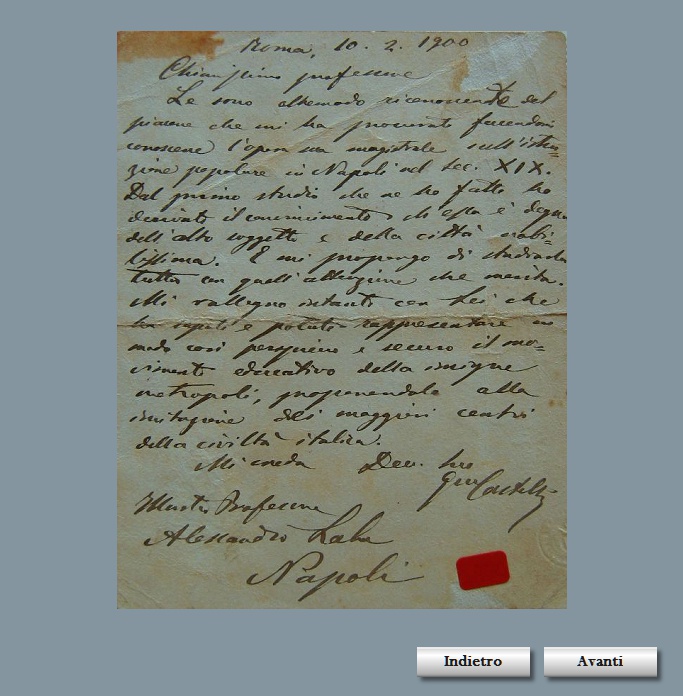 Roma, 10. 2. 1900
Chiarissimo professore
Le sono oltremodo riconoscente del
piacere che mi ha procurato facendomi
conoscere l'opera sua magistrale sull'istru-
zione popolare in Napoli nel sec. XIX.
Dal primo studio che ne ho fatto ho
derivato il convincimento ch'essa è degna
dell'alto soggetto e della città nobi-
lissima. E mi propongo di studiarla
tutta con quell'attenzione che merita.
Mi rallegro intanto con Lei che
ha saputo e potuto rappresentare in
modo così perspicuo e sicuro il mo-
vimento educativo della insigne
metropoli, proponendola alla
imitazione dei maggiori centri
della civiltà italica.
Mi creda Dev. suo
Castelli
Illustre Professore
Alessandro
Napoli
Indietro
Avanti